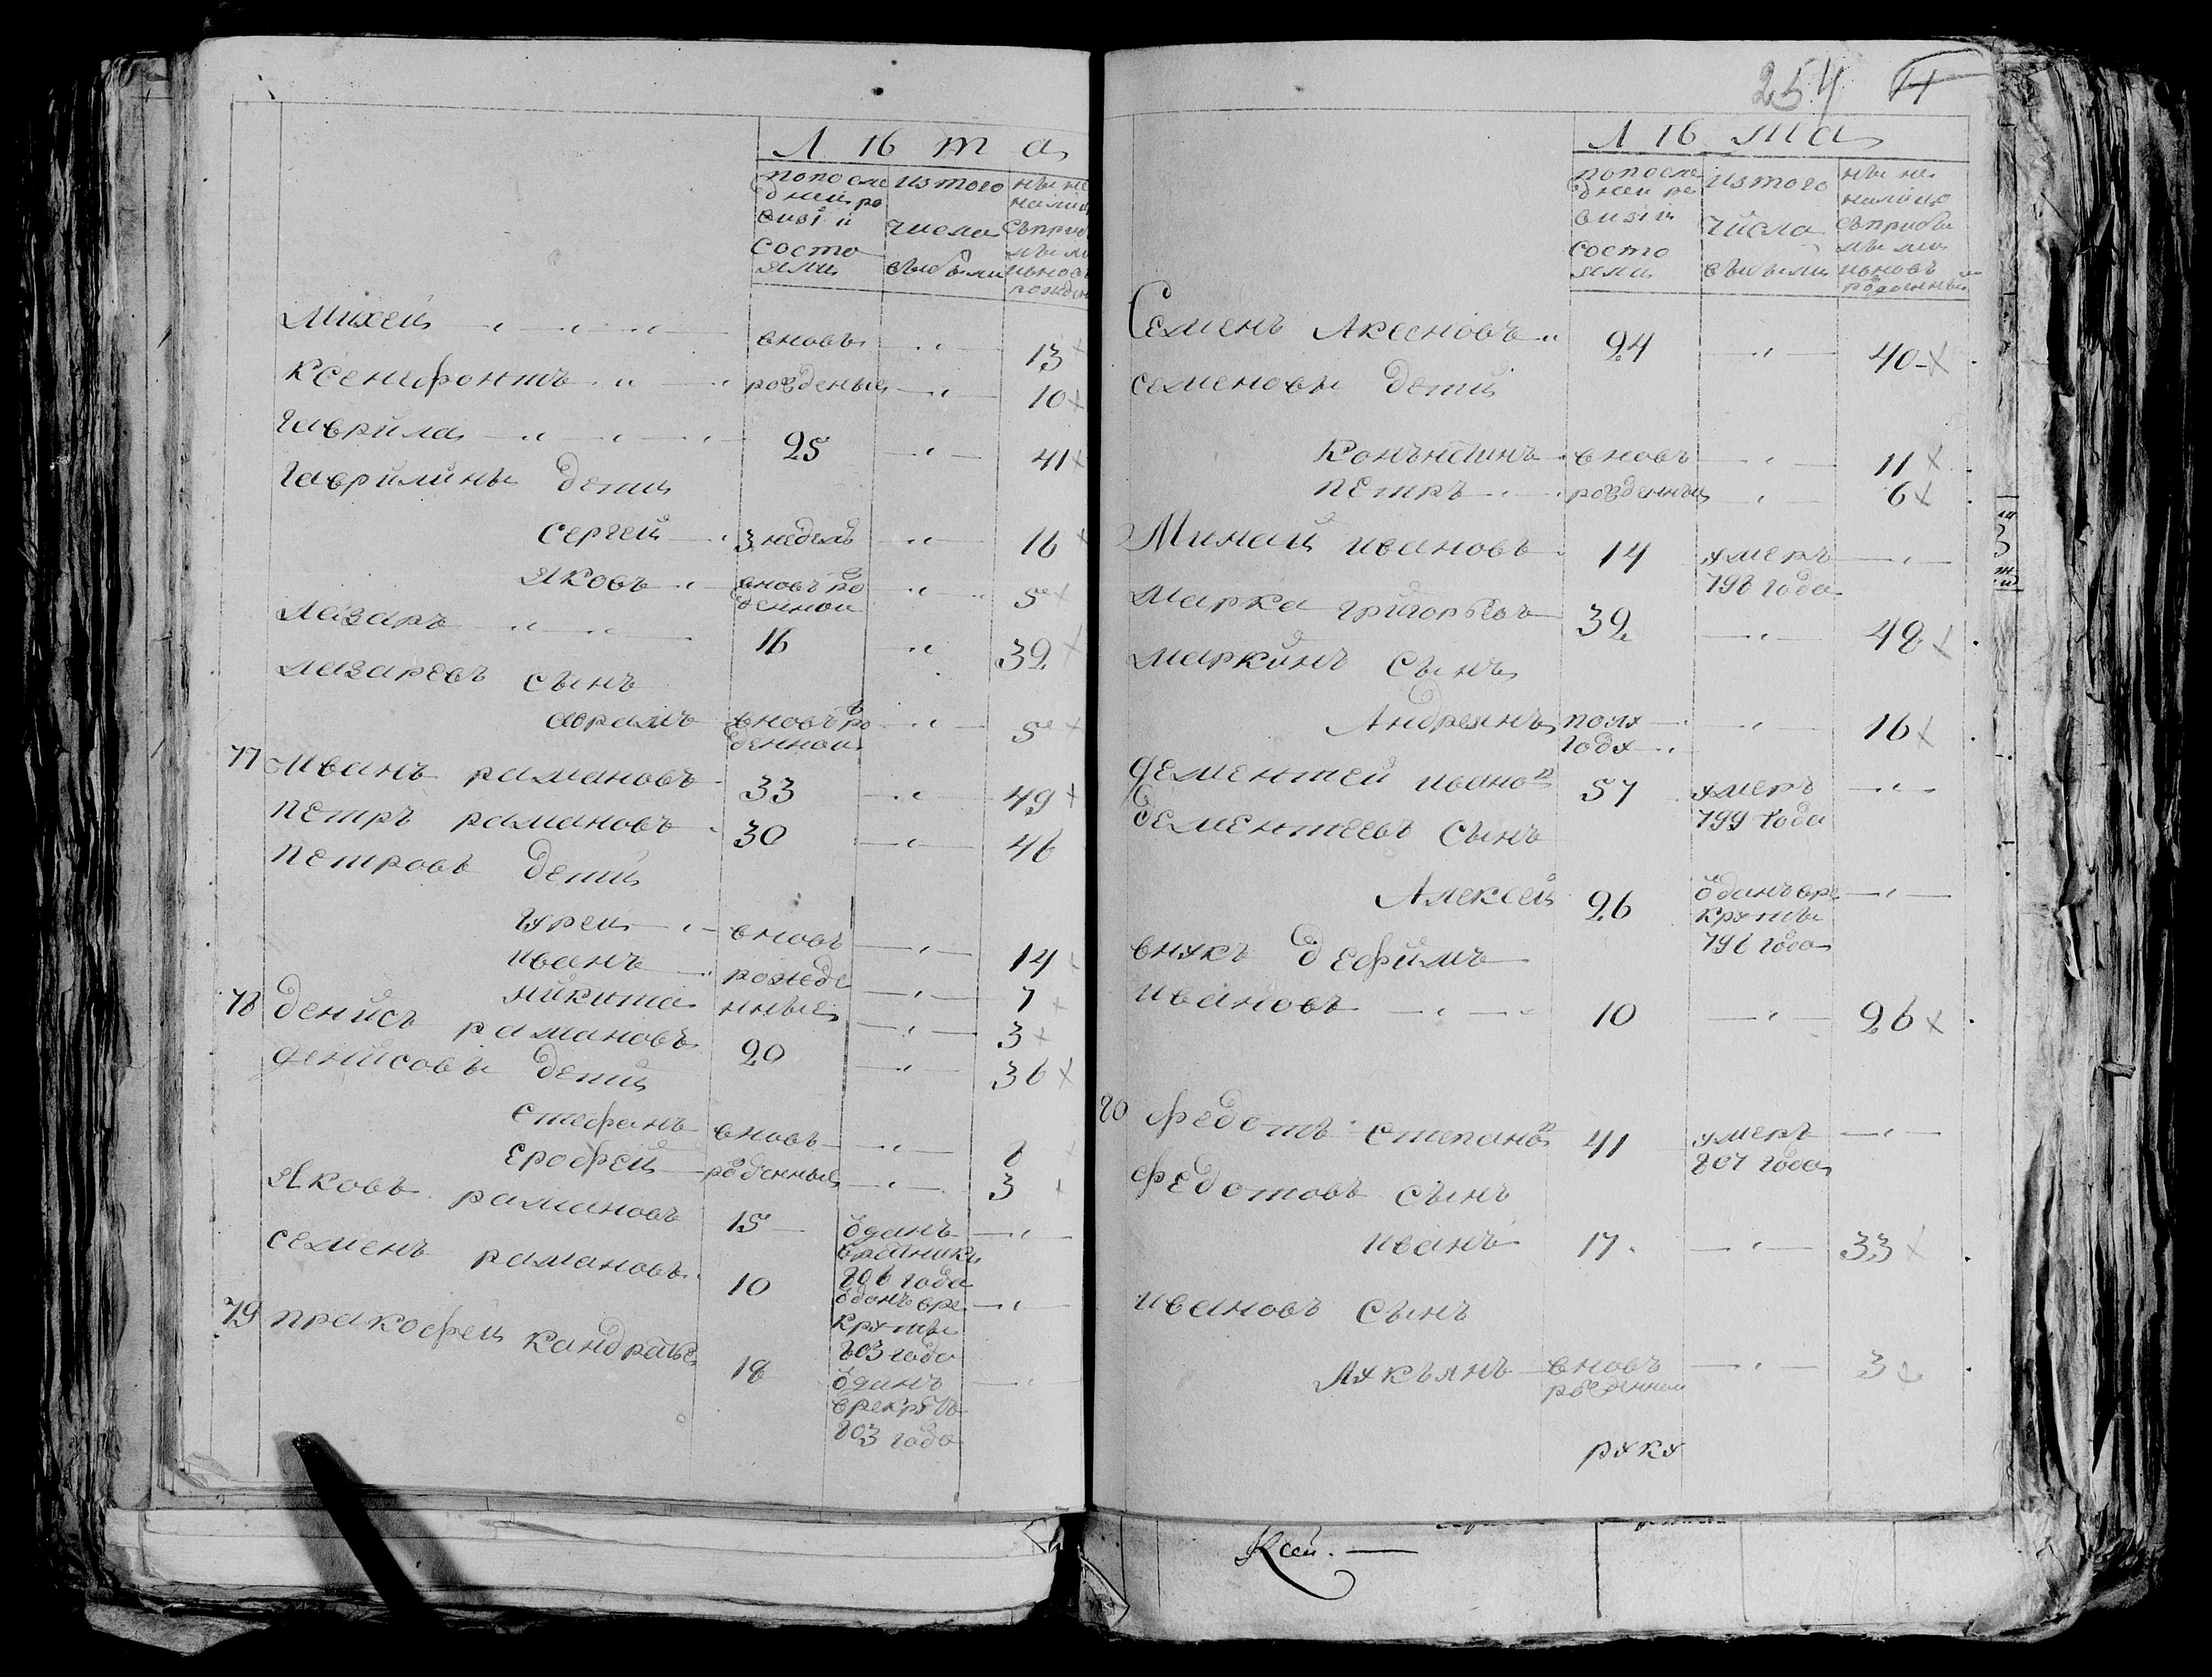 Л 16 т а
попосле изтого ныне
дней ре налицо
визіи числа съприб
состо лыми
яли выбыли иновъ
рожден
Михей — " — " — вновь — " — 13
Ксенефонтъ — " — рожденыя — " — 10
Гаврила — " — " — 25 — " — 41
Гаврилины дети
Сергей — " 3 недель — " — 16
Яковъ — " вновь ро — " — 5
жденной
Лазарь — " — " — 16 — " — 32
Лазаревъ сынъ
Аврамъ вновь ро — " — 5
жденной
77 Иванъ Рамановъ 33 — " — 49
Петръ Рамановъ 30 — " — 46
Петровы дети
Гурей — " — вновь — " — 14
Иванъ — " рожде — " — 7
Никита нныя — " — 3
78 Денисъ Рамановъ 20 — " — 36
Денисовы дети
Стефанъ вновь — " — 8
Ерофей рожденныя — " — 3
Яковъ Рамановъ 15 — отданъ — " —
806 года
Семенъ Рамановъ 10 отданъ вре — " —
круты
803 года
79 Пракофей Кандратье 18 отданъ — " —
врекруты
803 года
254
Л 16 та
попосле изтого ныне
дней ре налицо
визіи числа съприбы
состо лыми
яли выбыли иновъ
рожденными
Семенъ Аксеновъ " 24 — " — 40
Семеновы дети
Конъстинъ вновь — " — 11
Петръ — " рожденныя — " — 6
Минай Ивановъ 14 умеръ — " —
798 года
Марка Григорьевъ 32 — " — 48
Маркинъ сынъ
Андреянъ полу — " — 16
году — "
Дементей Ивановъ 57 умеръ — " —
799 года
Дементеевъ сынъ
Алексей 26 отданъ вре — " —
круты
796 года
внукъ Ефимъ
Ивановъ — " — 10 — " — 26
80 Федотъ Степановъ 41 умеръ — " —
807 года
Федотовъ сынъ
Иванъ 17 — " — 33
Ивановъ сынъ
Лукъянъ вновь — " — 3
рожденной
руку